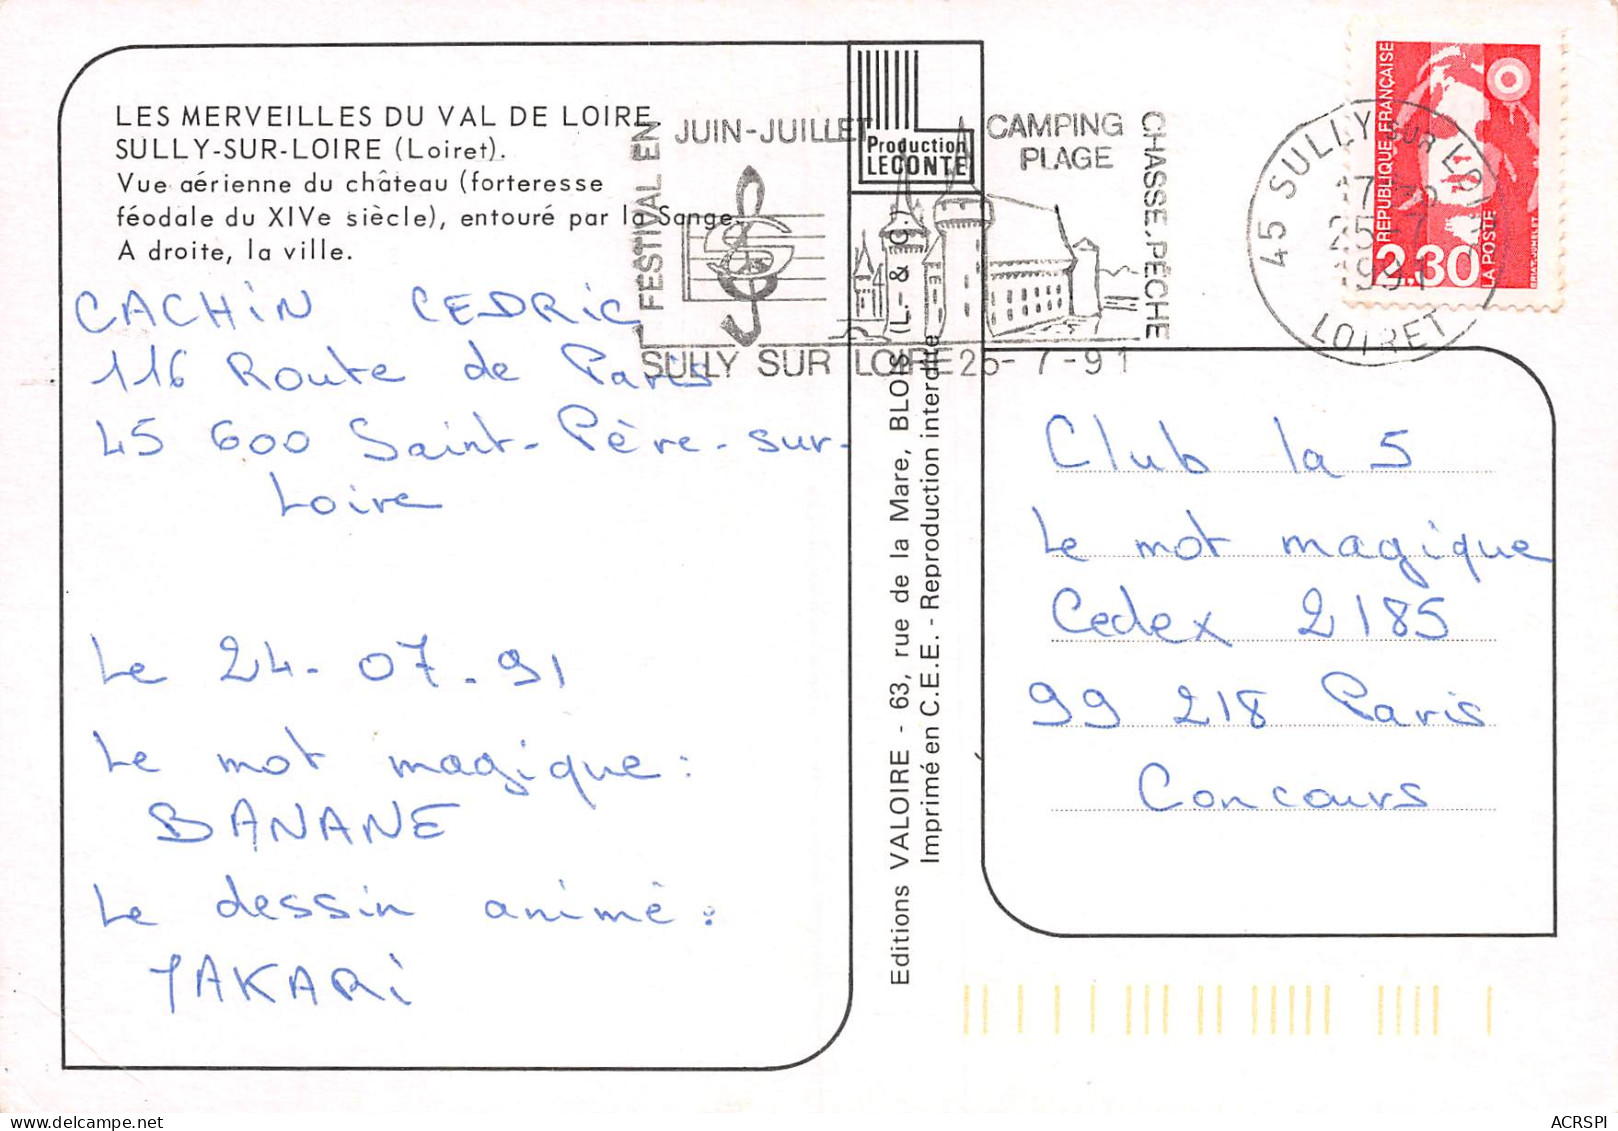 LES MERVEILLES DU VAL DE LOIRE.
SULLY-SUR-LOIRE (Loiret).
Vue aérienne du château (forteresse
féodale du XIVe siècle), entouré par la Sange.
A droite, la ville.
CACHiN CEDRiC
116 Route de Paris
45 600 Saint-Père-sur-
Loire
Le 24-07-91
Le mot magique:
BANANE
Le dessin animé:
YAKARi
Production
LECONTE
FESTIVAL EN
JUIN-JUILLET
CAMPING
PLAGE
CHASSE, PECHE
SULLY SUR LOIRE 25-7-91
Editions VALOIRE - 63, rue de la Mare, BLOIS (L.-&-C.)
Imprimé en C.E.E. - Reproduction interdite
REPUBLIQUE FRANÇAISE
2.30
LA POSTE
45 SULLY SUR LOIRE
25-7
1991
LOIRET
Club la 5
Le mot magique
Cedex 2185
99 218 Paris
Concours
ACRSPI